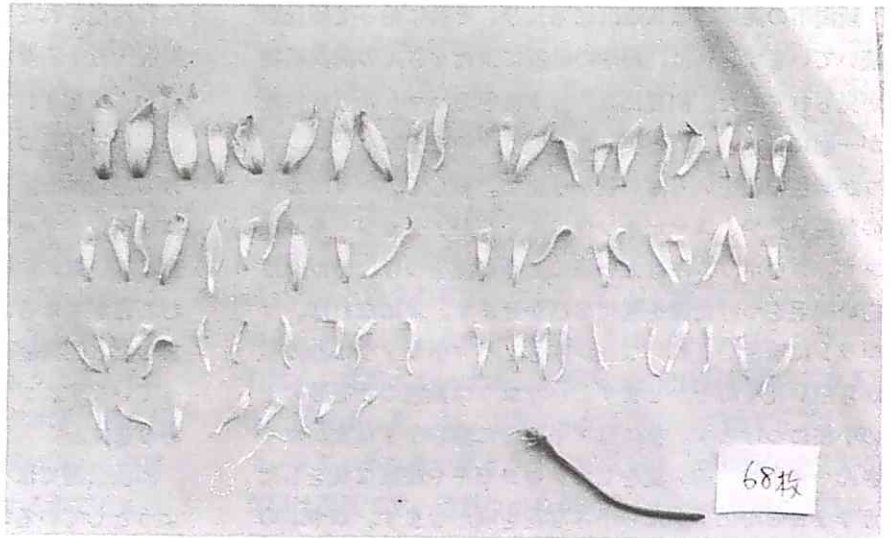 68枚